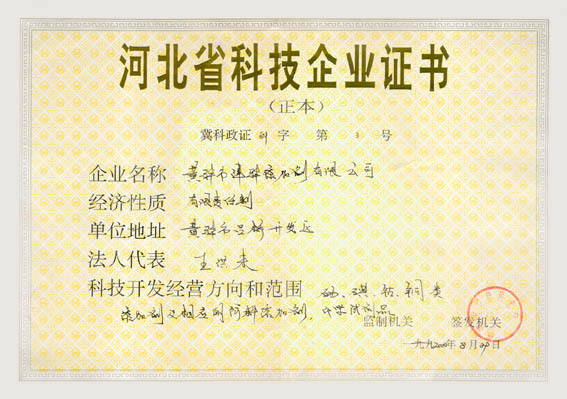 河北省科技企业证书
(正本)
冀科政证 字 第 3 号
企业名称 黄骅市 骅 添加剂有限公司
经济性质 有限责任制
单位地址 黄骅市吕桥开发区
法人代表 王 来
科技开发经营方向和范围 硒、碘、钴、 类
添加剂及相应的饲料添加剂,化学试剂产品
监制机关 签发机关
一九 2000年8月 日